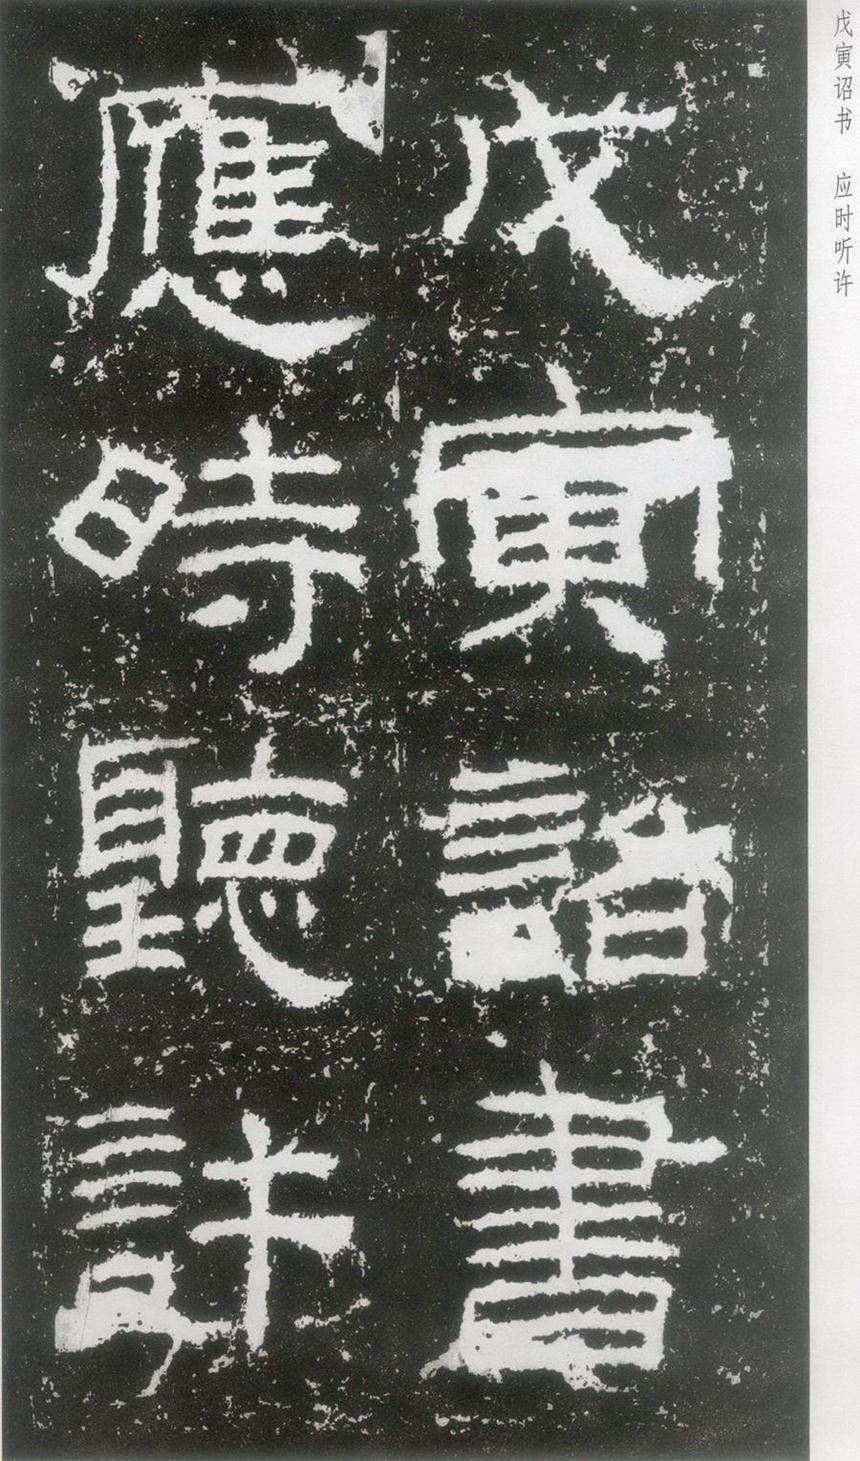 戊寅诏书 应时听许
戊寅詔書
應時聽許